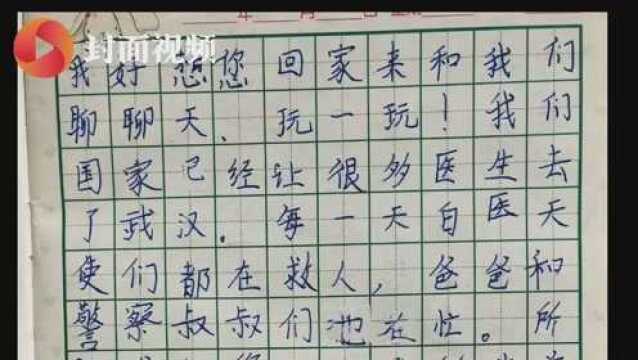 年 月 日
封面视频
我好想您回家来和我们
聊聊天、玩一玩！我们
国家已经让很多医生去
了武汉．每一天白医天
使们都在救人，爸爸和
警察叔叔们也在忙。所